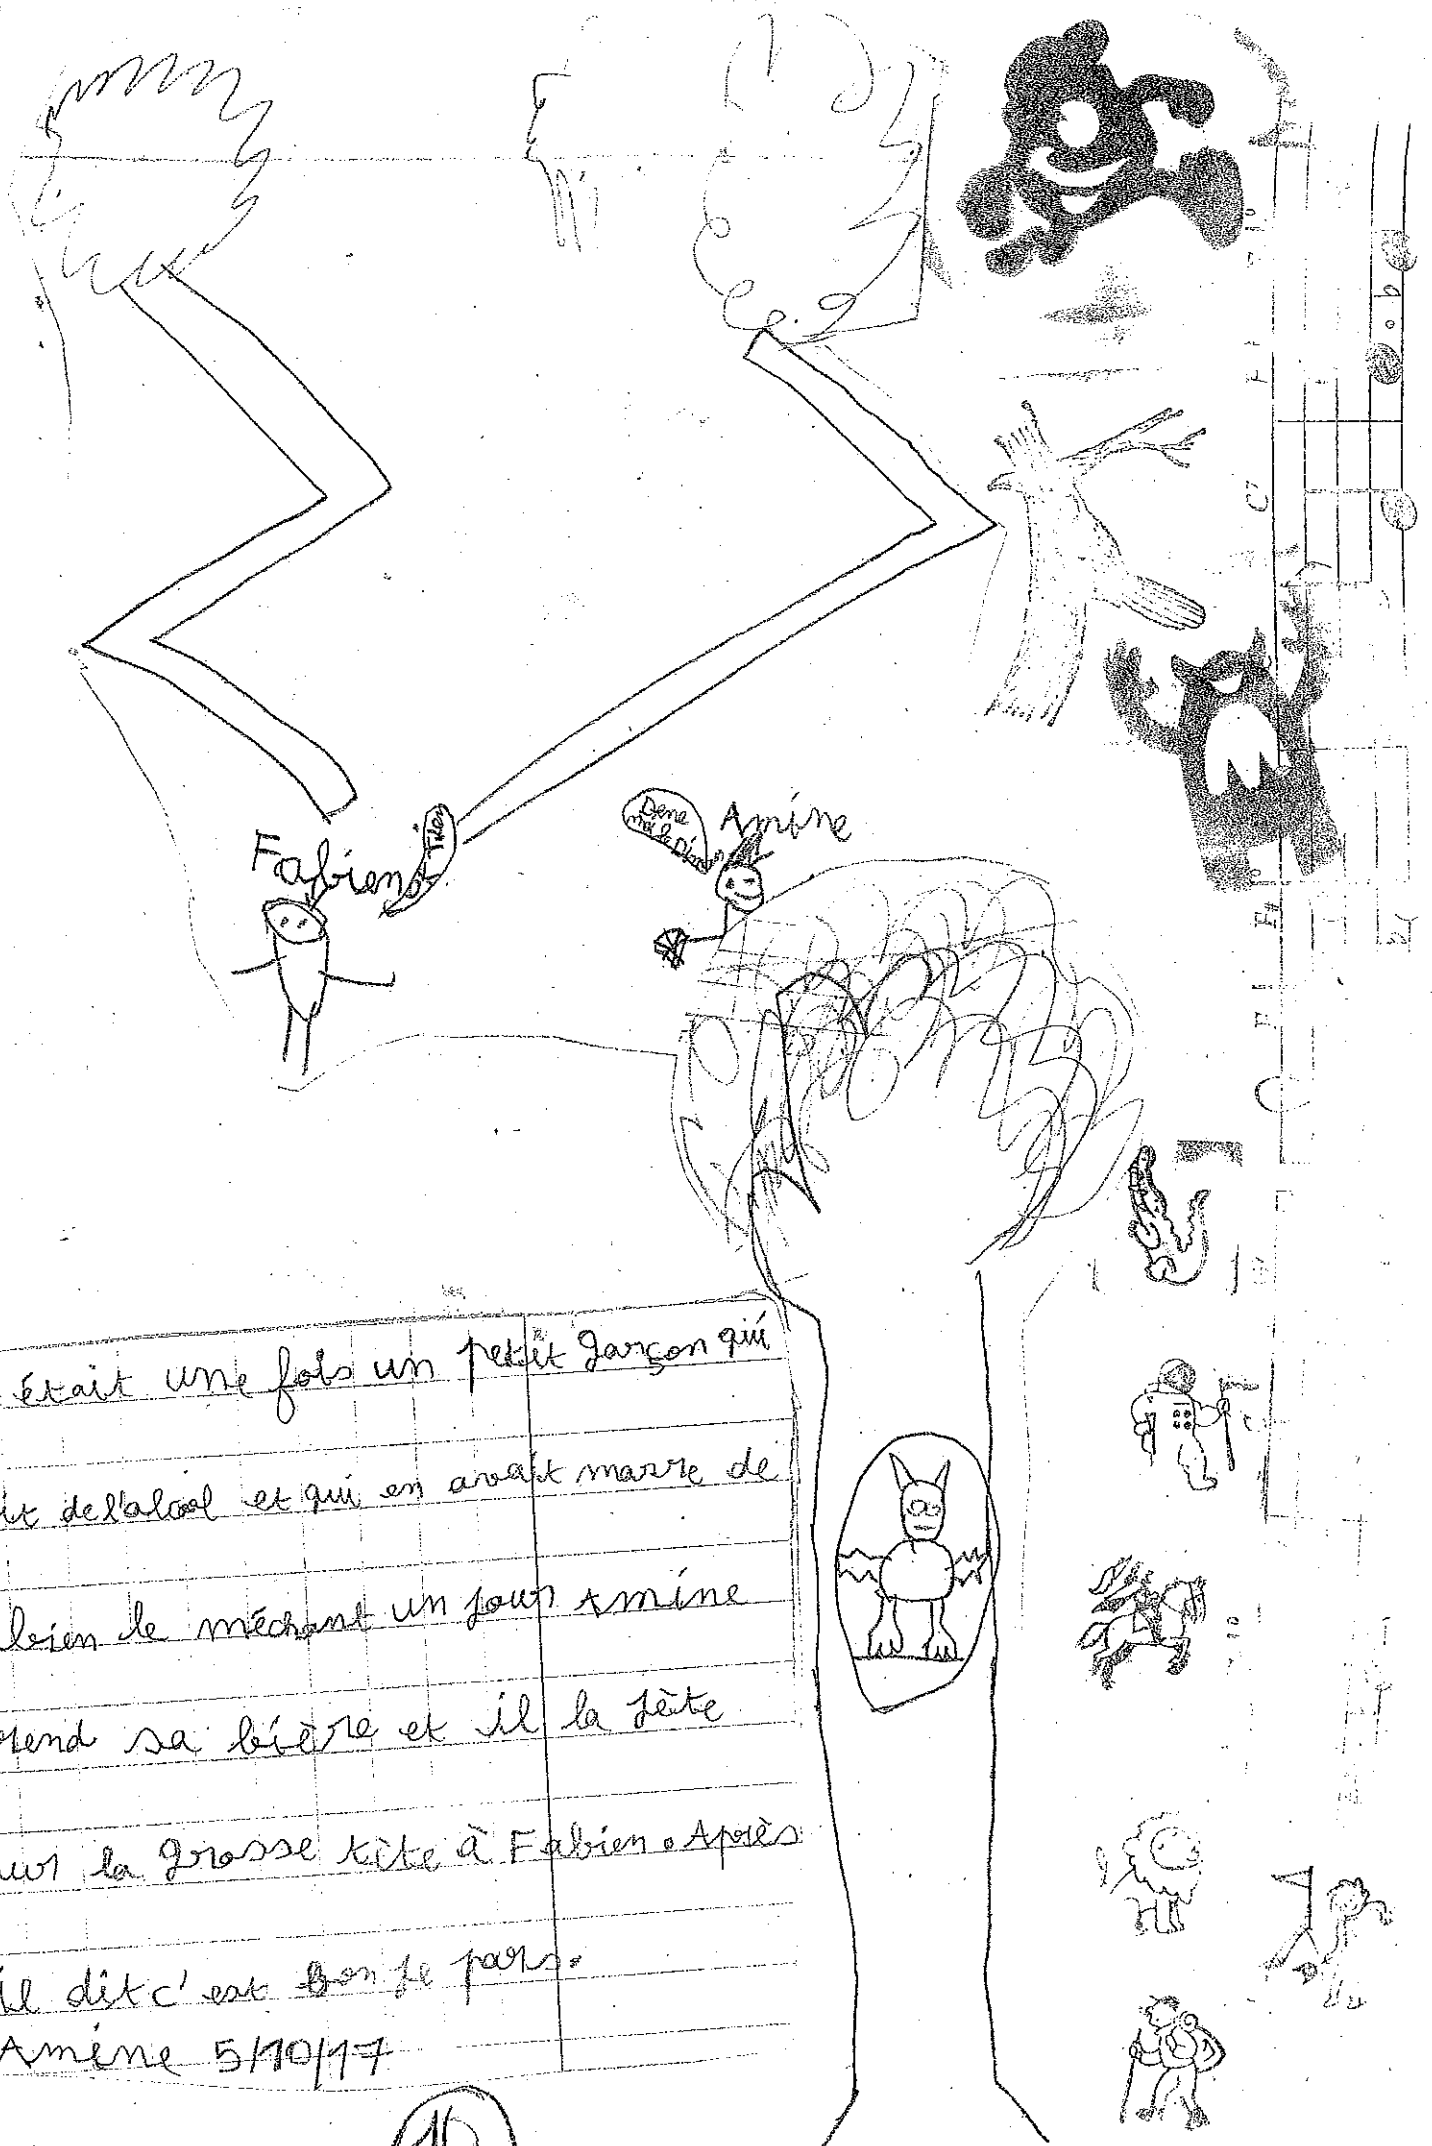 Fabien
Tiens
Amine
était une fois un petit garçon qui
it de l'alcool et qui en avait marre de
bien le méchant un jour Amine
rend sa bière et il la jète
ur la grosse tête à Fabien. Après
il dit c'est bon je pars.
Amine 5/10/17